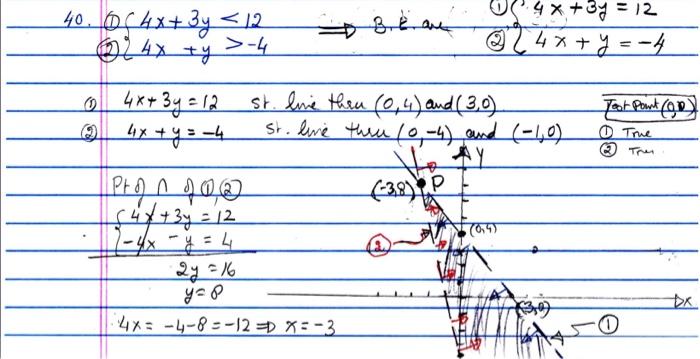 40. ① { 4x + 3y < 12 ⟹ B.E. are ① { 4x + 3y = 12
② { 4x + y > -4 ② { 4x + y = -4
① 4x + 3y = 12 st. line thru (0,4) and (3,0) Test Point (0,0)
② 4x + y = -4 st. line thru (0,-4) and (-1,0) ① True
② True
Y
Pt of ∩ of ①,② (-3,8) P
{ 4x + 3y = 12
{ -4x - y = 4 ② (0,4)
2y = 16
y = 8
(3,0) X
4x = -4 - 8 = -12 ⟹ x = -3 ①